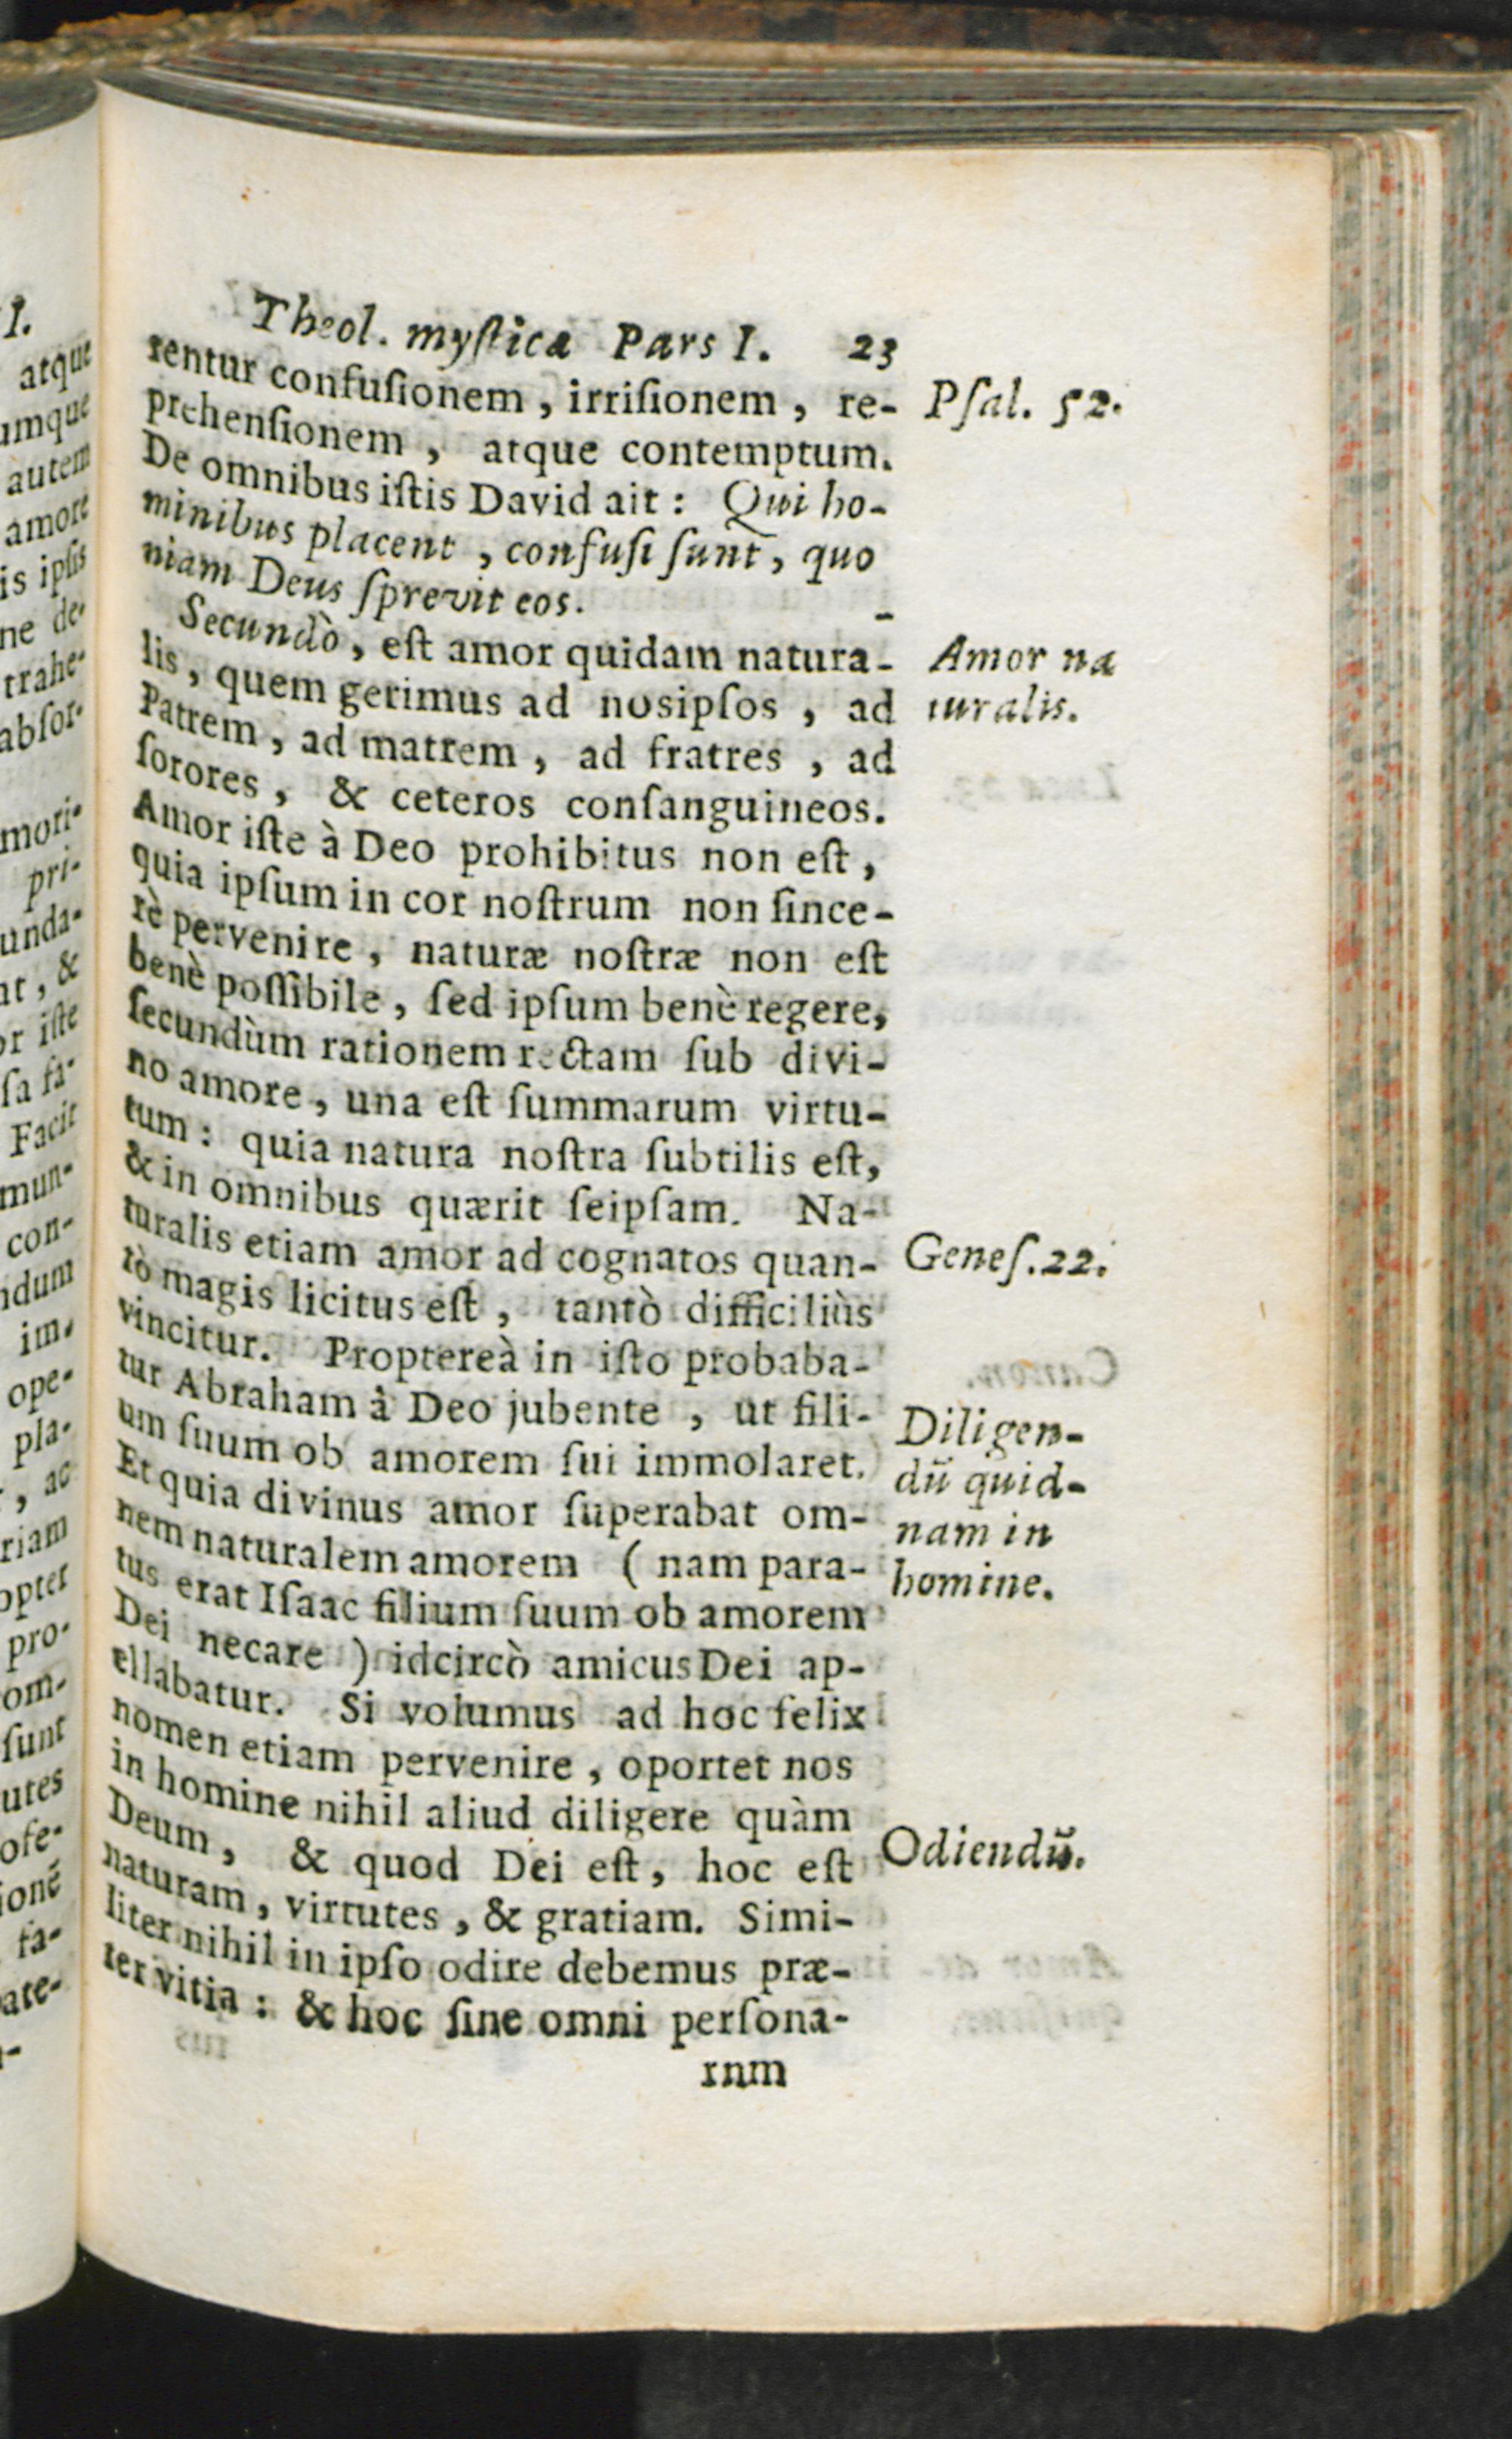 Theol. myſtica Pars I. 23
rentur confuſionem, irriſionem, re-
prehenſionem, atque contemptum.
De omnibus iſtis David ait: Qui ho-
minibus placent, confuſi ſunt, quo
niam Deus ſprevit eos.
Secundò, eſt amor quidam natura-
lis, quem gerimus ad nosipſos, ad
Patrem, ad matrem, ad fratres, ad
ſorores, & ceteros conſanguineos.
Amor iſte à Deo prohibitus non eſt,
quia ipſum in cor noſtrum non ſince-
rè pervenire, naturæ noſtræ non eſt
benè poſſibile, ſed ipſum benè regere,
ſecundùm rationem rectam ſub divi-
no amore, una eſt ſummarum virtu-
tum: quia natura noſtra ſubtilis eſt,
& in omnibus quærit ſeipſam. Na-
turalis etiam amor ad cognatos quan-
tò magis licitus eſt, tantò difficiliùs
vincitur. Proptereà in iſto probaba-
tur Abraham à Deo jubente, ut fili-
um ſuum ob amorem ſui immolaret.
Et quia divinus amor ſuperabat om-
nem naturalem amorem (nam para-
tus erat Iſaac filium ſuum ob amorem
Dei necare) idcircò amicus Dei ap-
ellabatur. Si volumus ad hoc felix
nomen etiam pervenire, oportet nos
in homine nihil aliud diligere quàm
Deum, & quod Dei eſt, hoc eſt
naturam, virtutes, & gratiam. Simi-
liter nihil in ipſo odire debemus præ-
ter vitia: & hoc ſine omni perſona-
rnm
Pſal. 52.
Amor na
turalis.
Geneſ. 22.
Diligen-
dū quid-
nam in
homine.
Odiendū.
I.
atque
umque
autem
amore
is ipſis
ne de-
trahe-
abſor-
mori-
pri-
unda-
nt, &
or iſte
ſa fa-
Facit
mun-
con-
ndum
im-
ope-
pla-
, ac
riam
opter
pro-
om-
ſunt
utes
ofe-
ionē
fa-
ate-